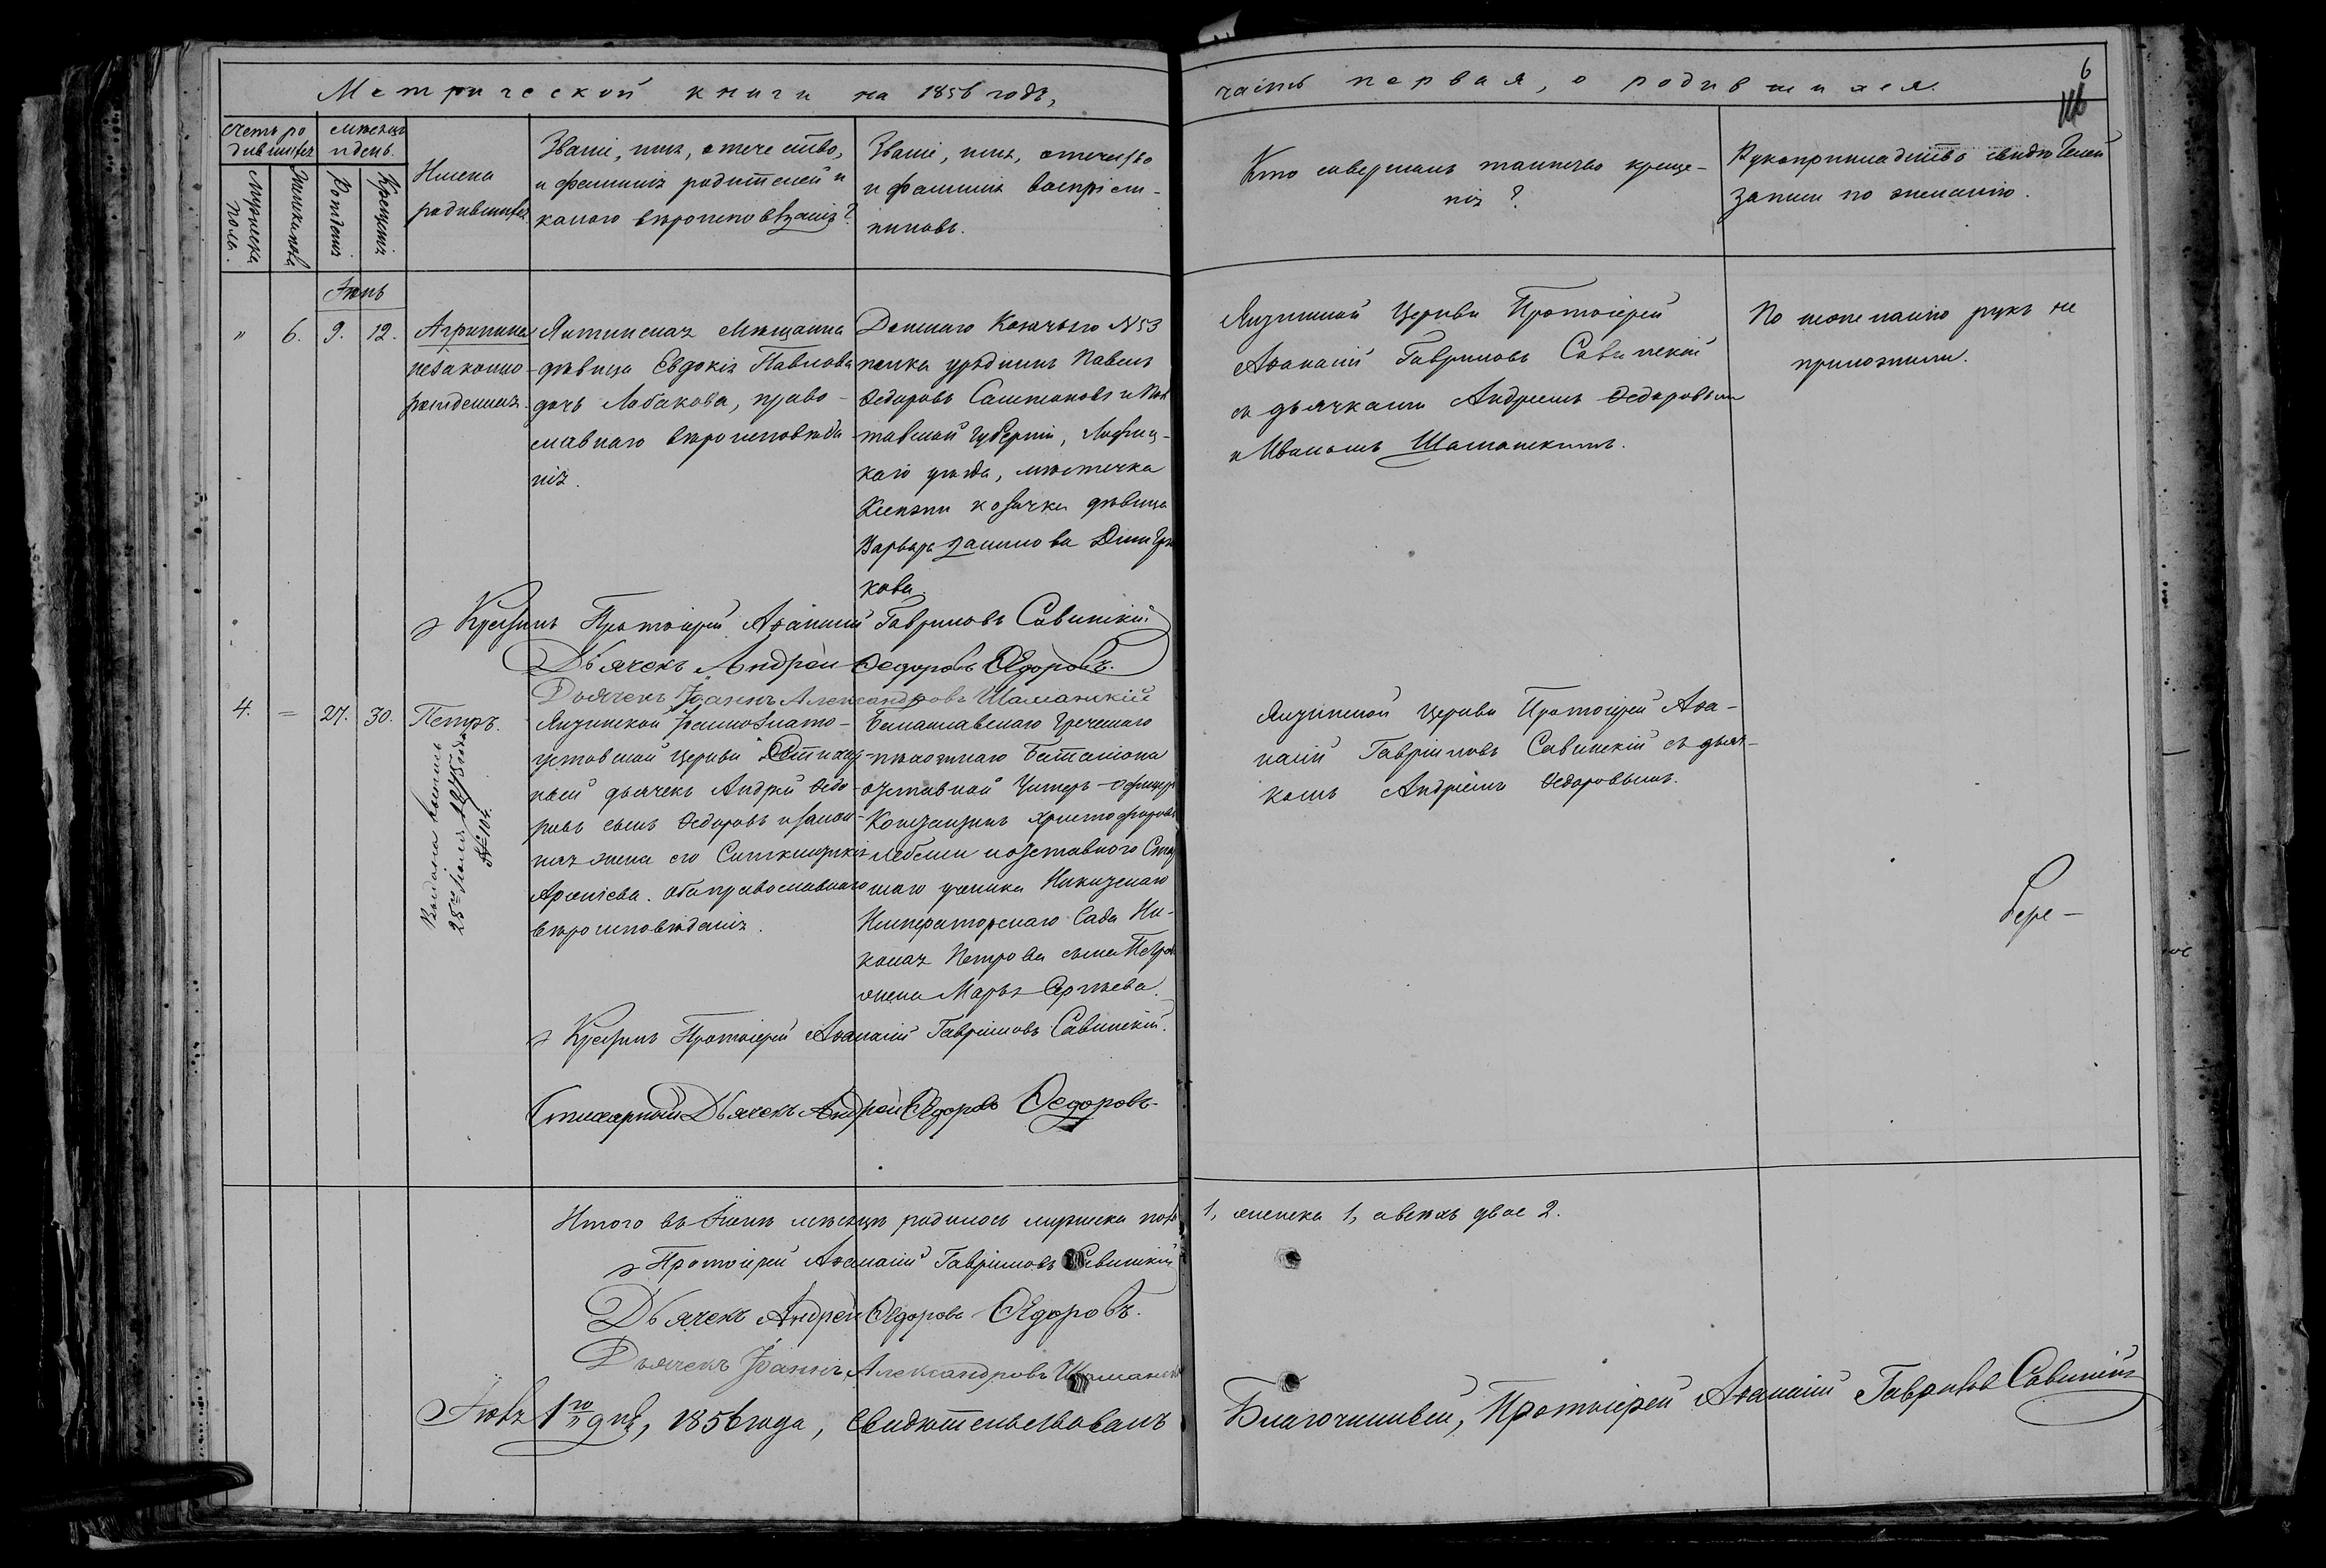 Метрической книги на 1856 годъ,
часть первая, о родившихся.
6
Счетъ ро
дившихся
Мѣсяцъ
и день.
Мужеска
полъ.
Женска пола
Рожденія
Крещенія
Имена
родившихся
Званіе, имя, отечество,
и фамилія родителей и
какого вѣроисповѣданія?
Званіе, имя, отечество
и фамилія воспріем-
никовъ.
Кто совершалъ таинство креще-
нія?
Рукоприкладство свидѣтелей
записи по желанію.
Іюнь
" 6. 9. 12.
Агрипина
незаконно-
рожденная.
Ялтинская Мѣщанка
дѣвица Евдокія Павлова
дочь Лобакова, право-
славнаго вѣроисповѣда
нія.
Донскаго Казачьяго №53
полка урядникъ Павелъ
Ѳедоровъ и Пол
тавской Губерніи,
каго уѣзда, мѣстечка
козачка дѣвица
Варвара
кова.
Ялтинской Церкви Протоіерей
Аѳанасій Гавриловъ Савинскій
съ дьячками Андреемъ Ѳедоровымъ
и Иваномъ Шаманскимъ.
По желанію рукъ не
приложили.
Крестилъ Протоіерей Аѳанасій Гавриловъ Савинскій
Дьячекъ Андрей Ѳедоровъ Ѳедоровъ.
Дьячекъ Іоаннъ Александровъ Шаманскій
4. = 27. 30.
Петръ.
Выдана
25го Іюля
№ 104.
Ялтинской Іоанно Злато-
устовской Церкви Стихар-
ный дьячекъ Андрей Ѳедо-
ровъ сынъ Ѳедоровъ и закон-
ная жена его Синклитикія
Арсеніева. Оба православнаго
вѣроисповѣданія.
Балаклавскаго Греческаго
пѣхотнаго Баталіона
отставной Унтеръ-офицеръ
Константинъ Христофоровъ
и отставного Стар
шаго ученика Никитскаго
Императорскаго Сада Ни-
колая Петрова сына Петрова
жена Марья Сергѣева.
Ялтинской Церкви Протоіерей Аѳа-
насій Гавріиловъ Савинскій съ дьяч-
комъ Андреемъ Ѳедоровымъ.
Крестилъ Протоіерей Аѳанасій Гавріиловъ Савинскій.
Стихарный Дьячекъ Андрей Ѳедоровъ Ѳедоровъ
Бере-
Итого въ Іюнѣ мѣсяцѣ родилось мужеска пола 1, женска 1, а всѣхъ двое 2.
Протоіерей Аѳанасій Гавріиловъ Савинскій
Дьячекъ Андрей Ѳедоровъ Ѳедоровъ.
Дьячекъ Іоаннъ Александровъ Шаманскій
Іюля 1го дня, 1856 года, Свидѣтельствовалъ Благочинный, Протоіерей Аѳанасій Гавриловъ Савинскій